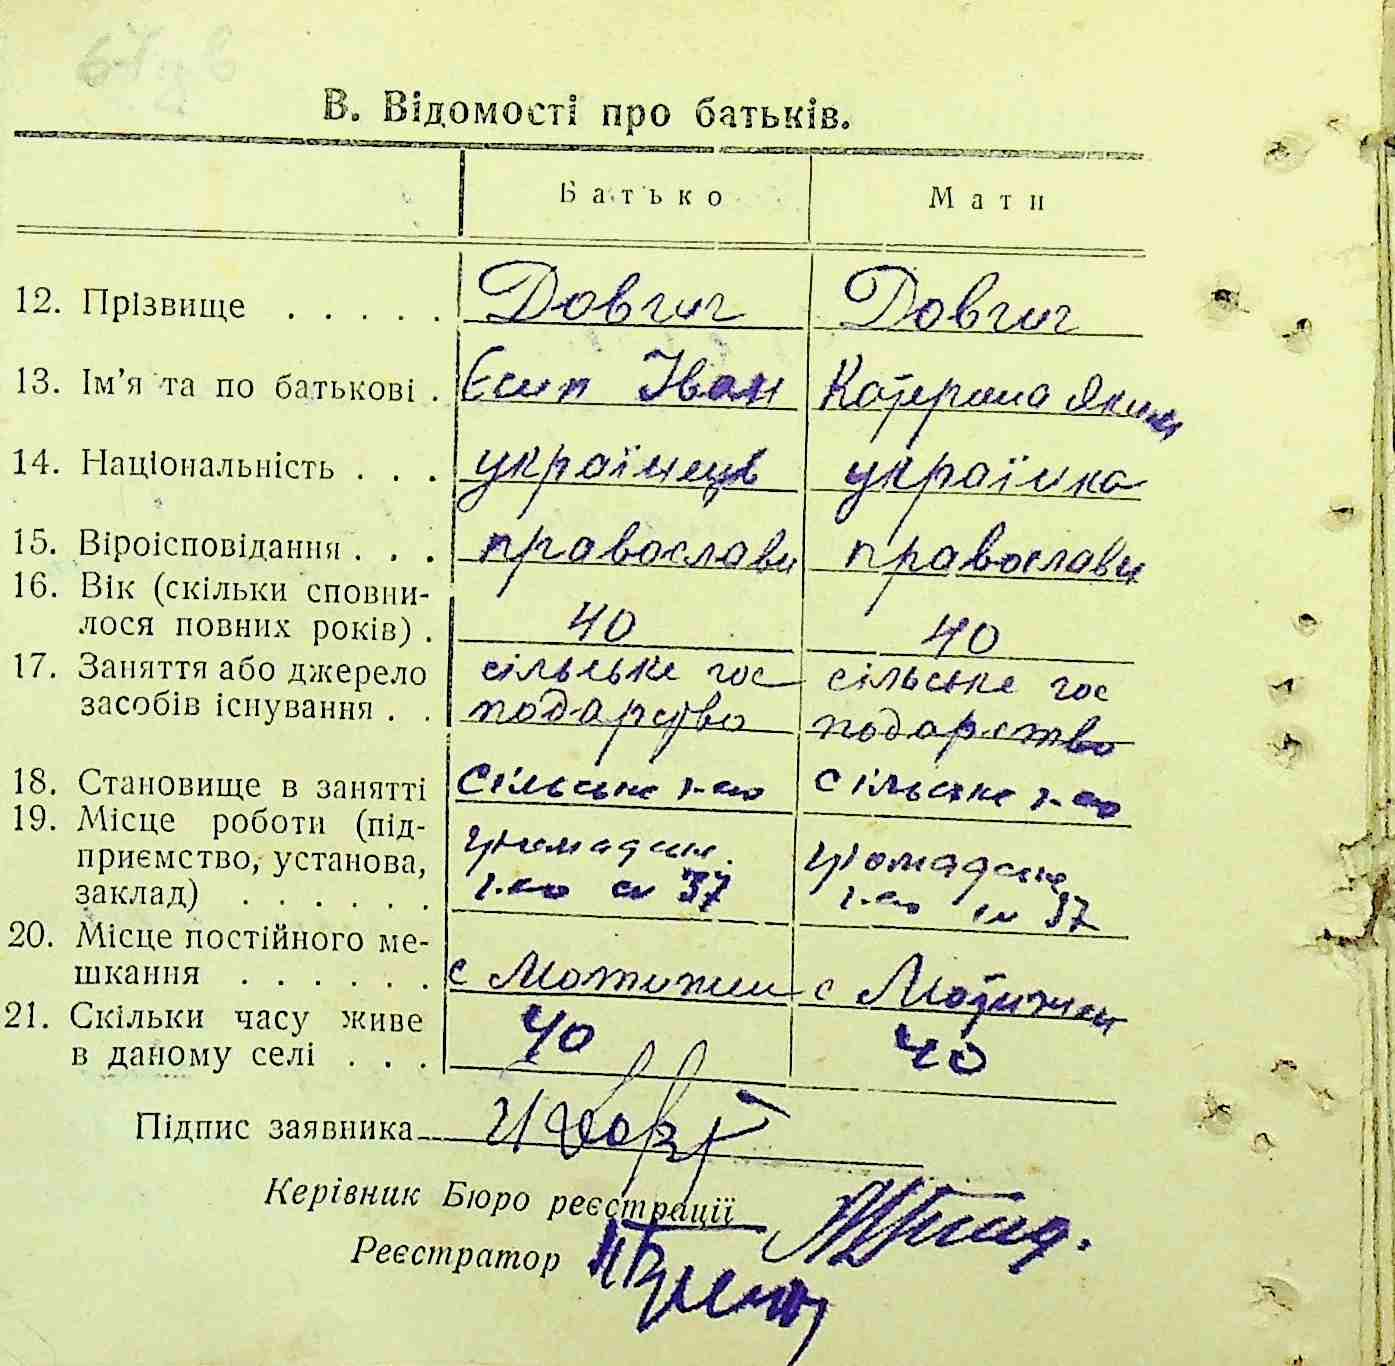 В. Відомості про батьків.
Батько Мати
12. Прізвище . . . . . Довгич Довгич
13. Ім'я та по батькові . Єсип Іван Катерина Яким
14. Національність . . . українець українка
15. Віроісповідання . . . православн православн
16. Вік (скільки сповни-
лося повних років) . 40 40
17. Заняття або джерело сільське гос сільське гос
засобів існування . . подарство подарство
18. Становище в занятті Сільське г-во сільске г-во
19. Місце роботи (під-
приємство, установа, громадськ. громадське
заклад) . . . . . . г-во 37 г-во 37
20. Місце постійного ме-
шкання . . . . . . с Мотижин с Мотижин
21. Скільки часу живе
в даному селі . . . 40 40
Підпис заявника
Керівник Бюро реєстрації
Реєстратор